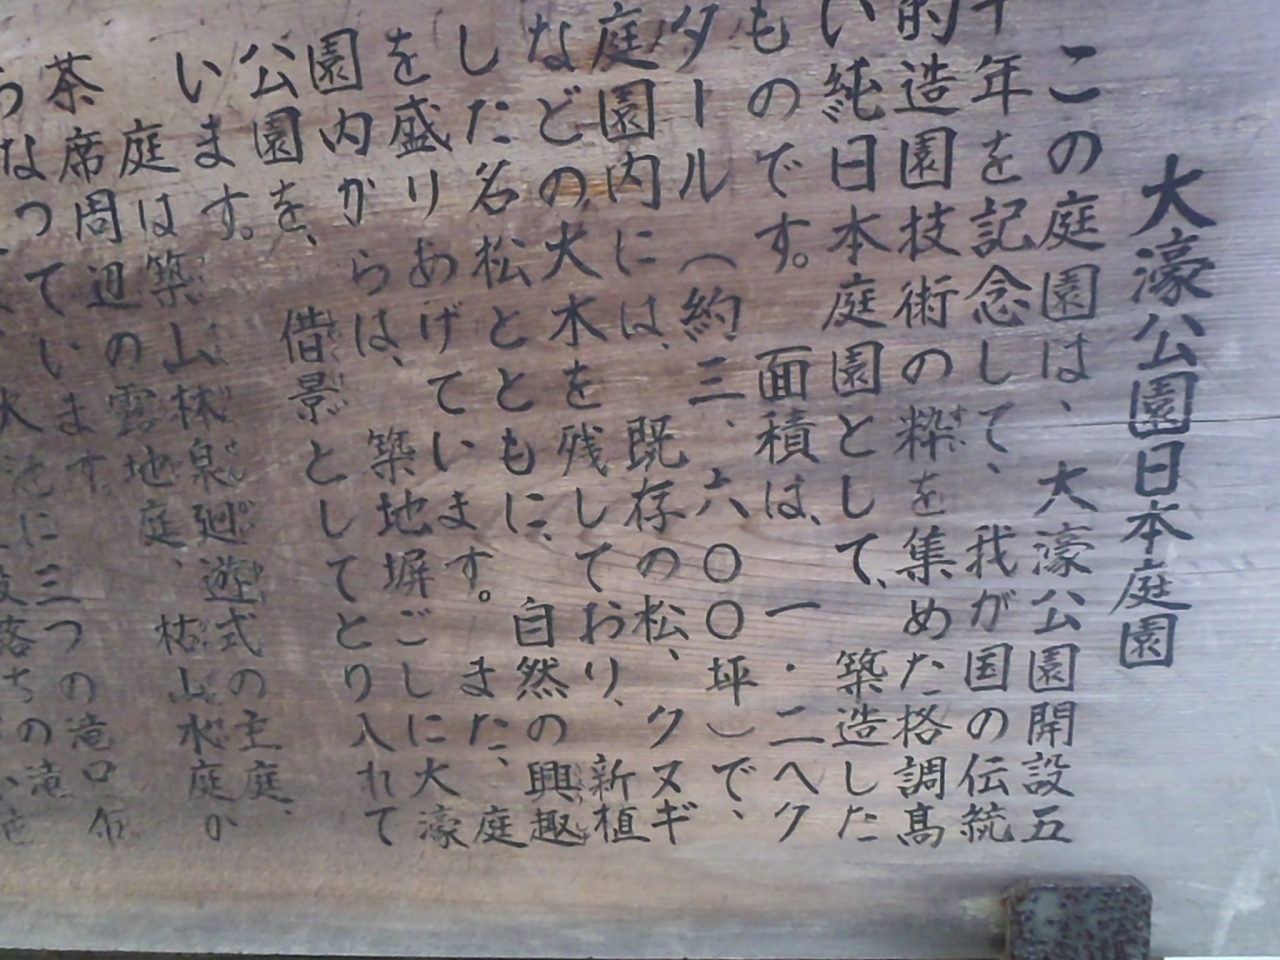 大濠公園日本庭園
この庭園は、大濠公園開設五
十年を記念して、我が国の伝統
的造園技術の粋を集めた格調高
い純日本庭園として、築造した
ものです。面積は、一・二ヘク
タール（約三、六〇〇坪）で、
庭園内には、既存の松、クヌギ
などの大木を残しており、新植
した名松とともに、自然の興趣
を盛りあげています。また、庭
園内からは、築地塀ごしに大濠
公園を、借景としてとり入れて
います。
庭は築山林泉廻遊式の主庭、
茶席周辺の露地庭、枯山水庭か
らなっています。
大池に三つの滝口
落ちの滝